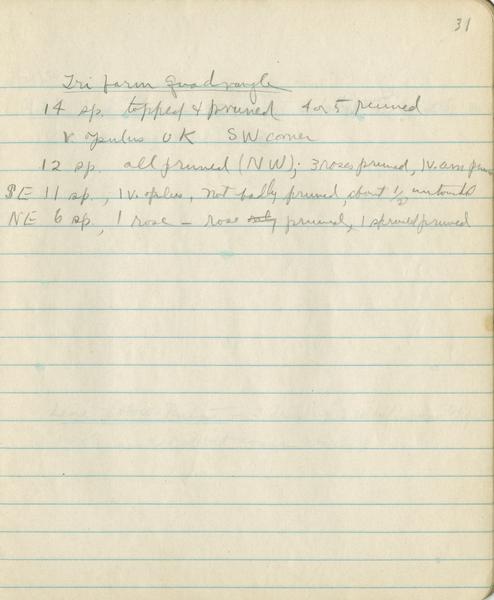 31
Tri farm Quadrangle
14 sp. topped & pruned 4 or 5 ruined
V. opulus OK SW corner
12 sp. all pruned (NW); 3 roses pruned, 1 v. am
SE 11 sp., 1 v. opulus, not badly pruned, about 1/2 untouched
NE 6 sp., 1 rose - rose pruned, 1 spruce pruned